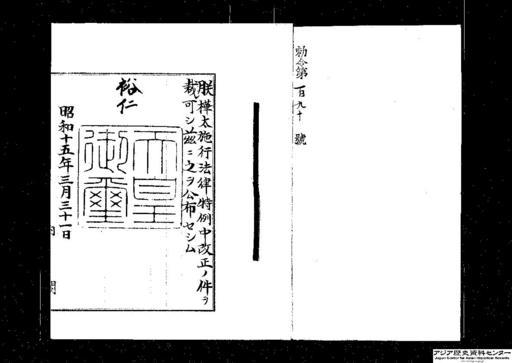 勅令第百九十號
朕樺太施行法律特例中改正ノ件ヲ
裁可シ茲ニ之ヲ公布セシム
裕仁
天皇
御璽
昭和十五年三月三十一日
内閣
アジア歴史資料センター
Japan Center for Asian Historical Records